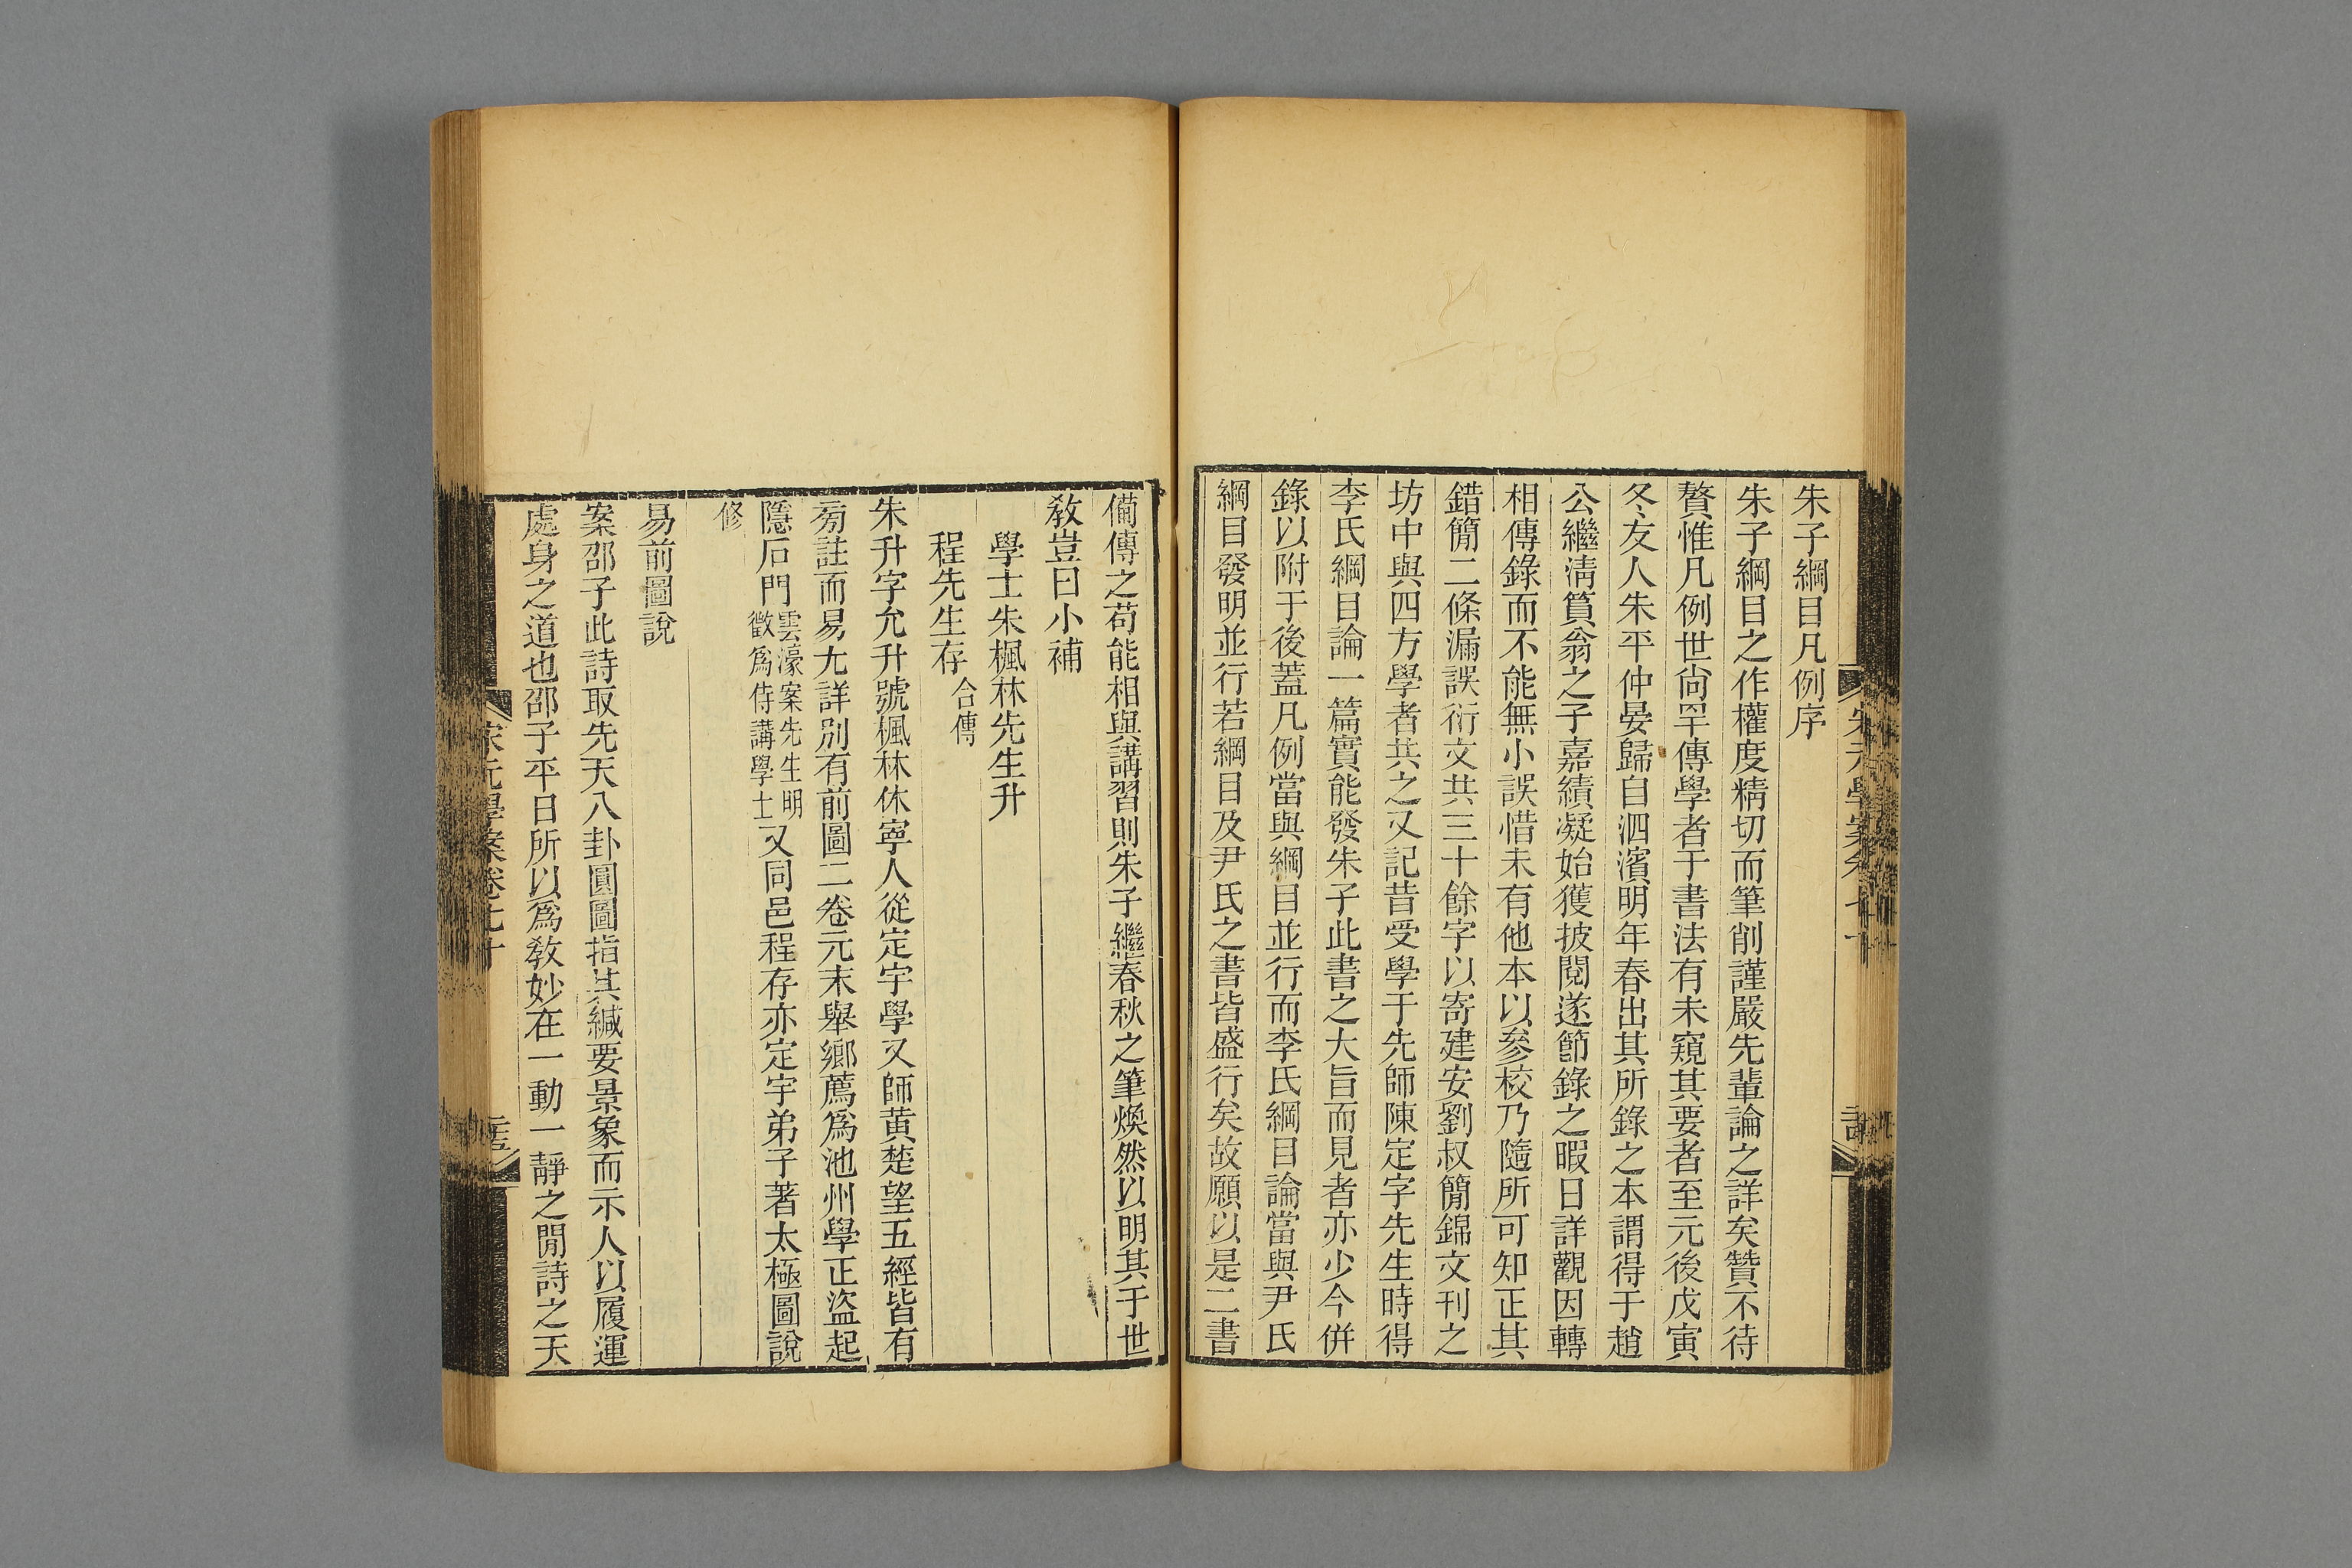 朱子綱目凡例序
朱子綱目之作權度精切而筆削謹嚴先輩論之詳矣贊不待
贅惟凡例世尙罕傳學者于書法有未窺其要者至元後戊寅
冬友人朱平仲晏歸自泗濱明年春出其所錄之本謂得于趙
公繼淸篔翁之子嘉績凝始獲披閱遂節錄之暇日詳觀因轉
相傳錄而不能無小誤惜未有他本以參校乃隨所可知正其
錯簡二條漏誤衍文共三十餘字以寄建安劉叔簡錦文刊之
坊中與四方學者共之又記昔受學于先師陳定宇先生時得
李氏綱目論一篇實能發朱子此書之大旨而見者亦少今倂
錄以附于後蓋凡例當與綱目並行而李氏綱目論當與尹氏
綱目發明並行若綱目及尹氏之書皆盛行矣故願以是二書
備傳之苟能相與講習則朱子繼春秋之筆煥然以明其于世
敎豈曰小補
學士朱楓林先生升
程先生存合傳
朱升字允升號楓林休寧人從定宇學又師黄楚望五經皆有
旁註而易尢詳别有前圖二卷元末舉鄕薦爲池州學正盜起
隱石門雲濠案先生明徵爲侍講學士又同邑程存亦定宇弟子著太極圖說
修
易前圖說
案邵子此詩取先天八卦圓圖指其緘要景象而示人以履運
處身之道也邵子平日所以爲敎妙在一動一靜之閒詩之天
宋元學案卷七十